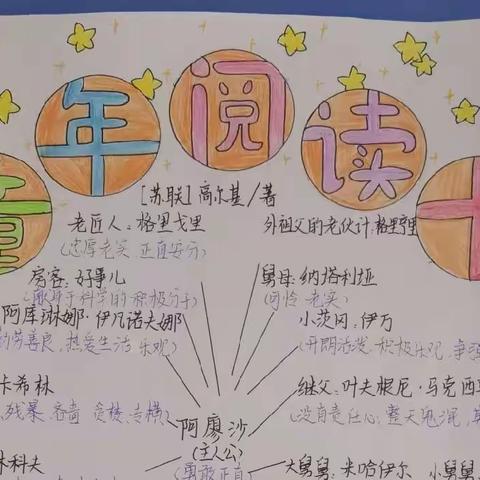 童年阅读卡
[苏联]高尔基/著
老匠人：格里戈里
(忠厚老实 正直安分)
外祖父的老伙计：格里
房客：好事儿
(献身于科学的积极分子)
舅母：纳塔利娅
(可怜 老实)
阿库琳娜·伊凡诺夫娜
勤劳善良，热爱生活 乐观)
小茨冈：伊万
(开朗活泼·积极乐观，争强
卡希林
残暴 吝啬 贪婪·专横)
继父：叶夫根尼·马克西
(没有责任心，整天鬼混，
阿廖沙
(主人公)
(勇敢正直
林科夫
大舅舅：米哈伊尔 小舅舅：